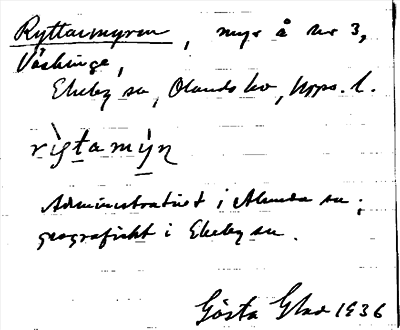 Ryttarmyren, myr å nr 3,
Väskinge,
Ekeby sn, Olands hd, Upps. l.
rɩ̀stamy̆n
Administrativt i Alunda sn;
geografiskt i Ekeby sn.
Gösta Glad 1936